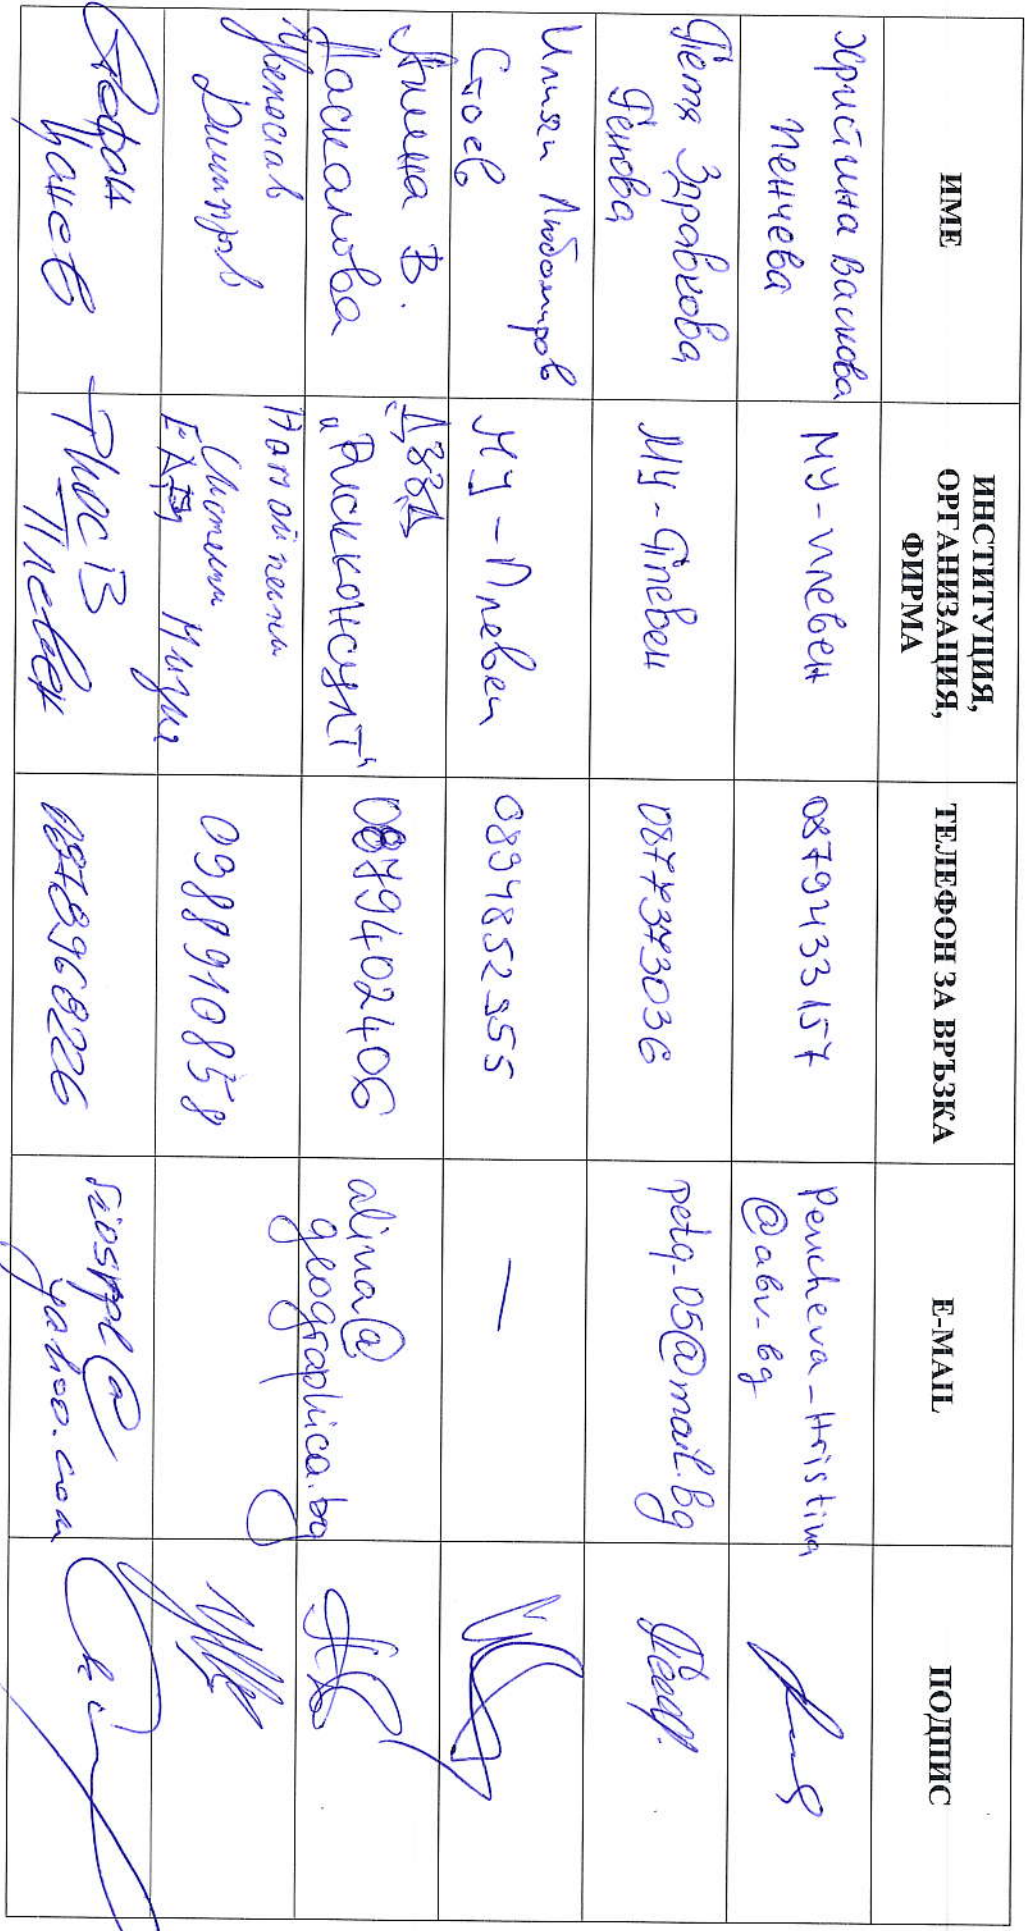 ИМЕ
ИНСТИТУЦИЯ,
ОРГАНИЗАЦИЯ,
ФИРМА
ТЕЛЕФОН ЗА ВРЪЗКА
E-MAIL
ПОДПИС
Християна Васкова
Пенчева
МУ-Плевен
0879433157
Pencheva_Hristina
@abv.bg
Петя Здравкова
Генова
МУ-Плевен
0877373036
petq_05@mail.bg
Илиян Любомиров
Стоев
МУ-Плевен
0894852955
—
Алина В.
Даскалова
ДЗЗД
"Рискконсулт"
0879402406
alina@
geographica.bg
Димитров
Напоителни
Системи
ЕАД Мизия
0988910858
Стефан
Цанев
РИОСВ
Плевен
riospl@
yahoo.com